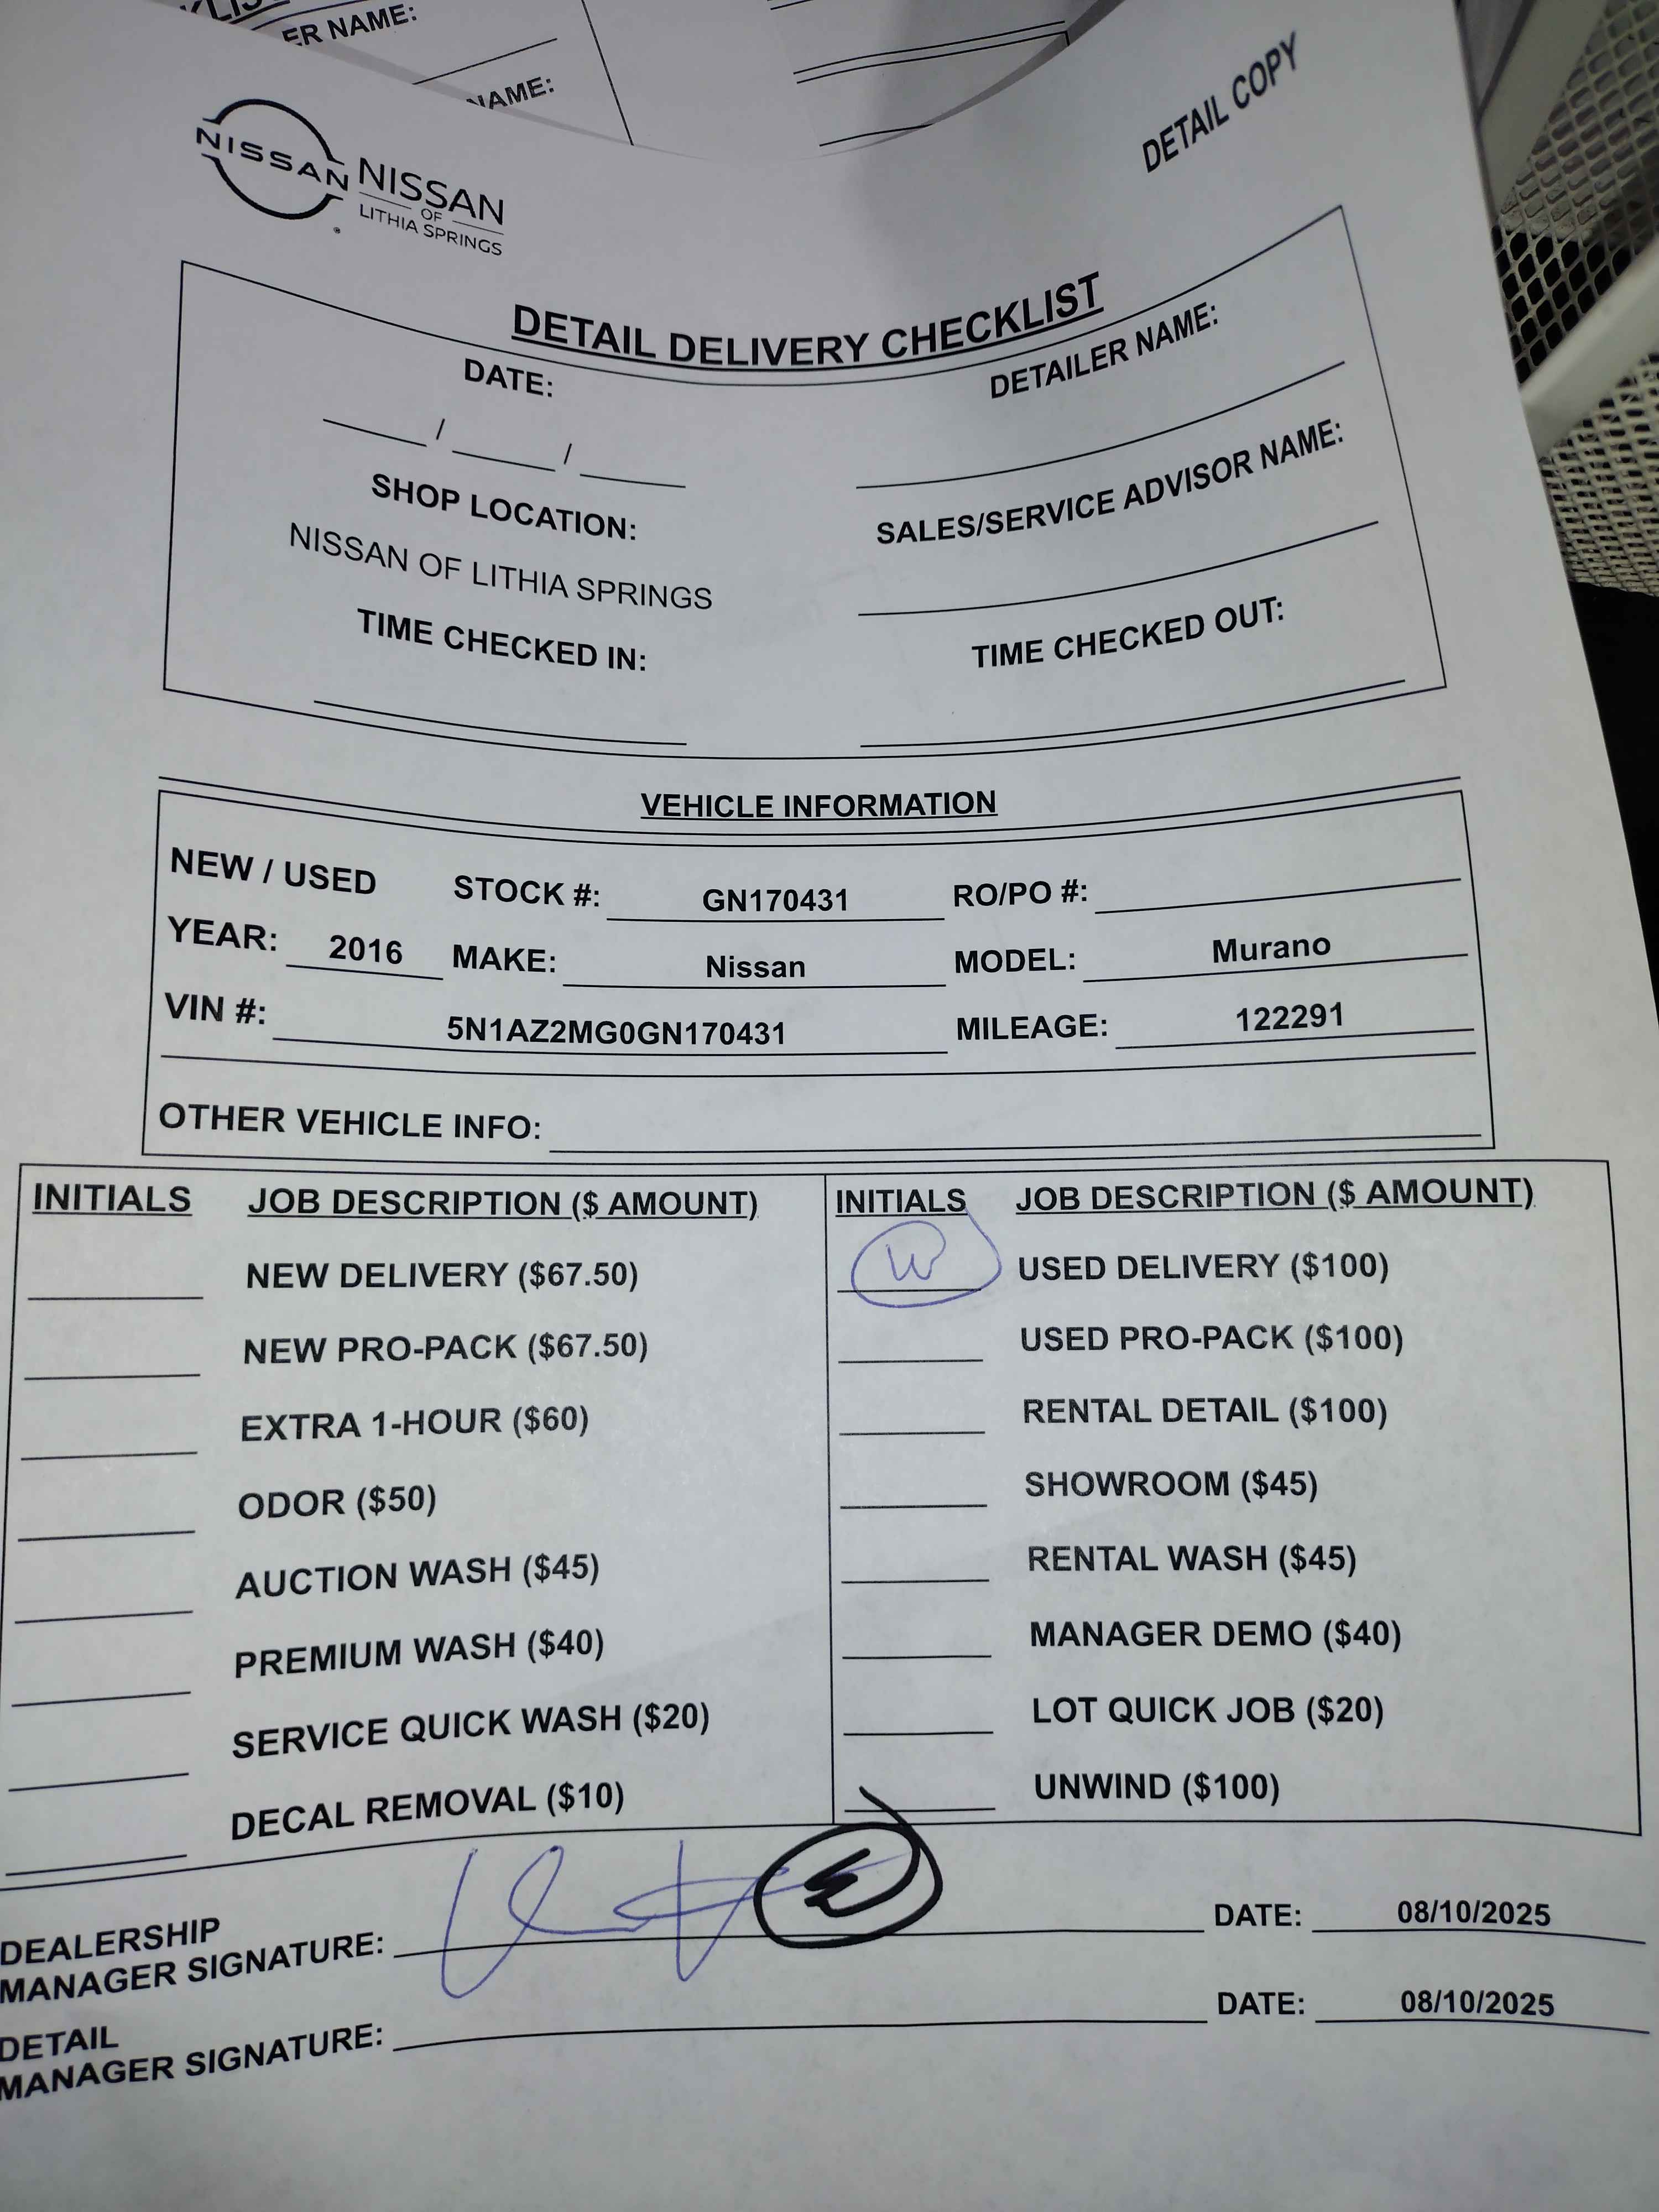 ER NAME:
NAME:
DETAIL COPY
NISSAN
NISSAN
OF
LITHIA SPRINGS
DETAIL DELIVERY CHECKLIST
DATE:
DETAILER NAME:
____/____/____
SHOP LOCATION:
SALES/SERVICE ADVISOR NAME:
NISSAN OF LITHIA SPRINGS
TIME CHECKED IN:
TIME CHECKED OUT:
VEHICLE INFORMATION
NEW / USED STOCK #: GN170431 RO/PO #:
YEAR: 2016 MAKE: Nissan MODEL: Murano
VIN #: 5N1AZ2MG0GN170431 MILEAGE: 122291
OTHER VEHICLE INFO:
INITIALS JOB DESCRIPTION ($ AMOUNT) INITIALS JOB DESCRIPTION ($ AMOUNT)
NEW DELIVERY ($67.50) W USED DELIVERY ($100)
NEW PRO-PACK ($67.50) USED PRO-PACK ($100)
EXTRA 1-HOUR ($60) RENTAL DETAIL ($100)
ODOR ($50) SHOWROOM ($45)
AUCTION WASH ($45) RENTAL WASH ($45)
PREMIUM WASH ($40) MANAGER DEMO ($40)
SERVICE QUICK WASH ($20) LOT QUICK JOB ($20)
DECAL REMOVAL ($10) UNWIND ($100)
DEALERSHIP
MANAGER SIGNATURE: DATE: 08/10/2025
DETAIL
MANAGER SIGNATURE: DATE: 08/10/2025